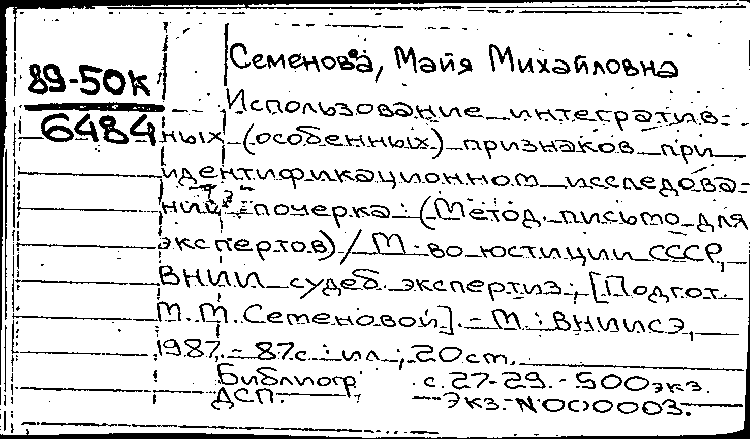 Семенова, Майя Михайловна
89-50К
6484
Использование интегратив=
ных (особенных) признаков при
идентификационном исследова=
нии почерка: (Метод. письмо для
экспертов) / М-во юстиции СССР,
ВНИИ судеб. экспертиз; [Подгот.
М.М. Семеновой]. - М.: ВНИИСЭ,
1987. - 87с.: ил.; 20см.
Библиогр. с. 27-29. - 500 экз.
ДСП. Экз. N000003.